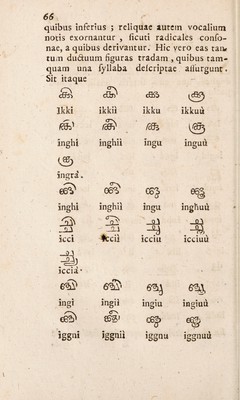 66
quibus inferius ; reliquae autem vocalium
notis exornantur , sicuti radicales conso-
nae, a quibus derivantur. Hic vero eas tan-
tum ductuum figuras tradam , quibus tam-
quam una syllaba descriptae assurgunt.
Sit itaque
ക്കി ക്കീ ക്കു ക്കൂ
Ikki ikkii ikku ikkuù
inghi inghii ingu inguù
ingrà.
inghi inghiì ingu inghuù
ച്ചി ച്ചീ ച്ചു ച്ചൂ
icci icciì icciu icciuù
iccià.
ingi ingii ingiu ingiuù
iggni iggnii iggnu iggnuù